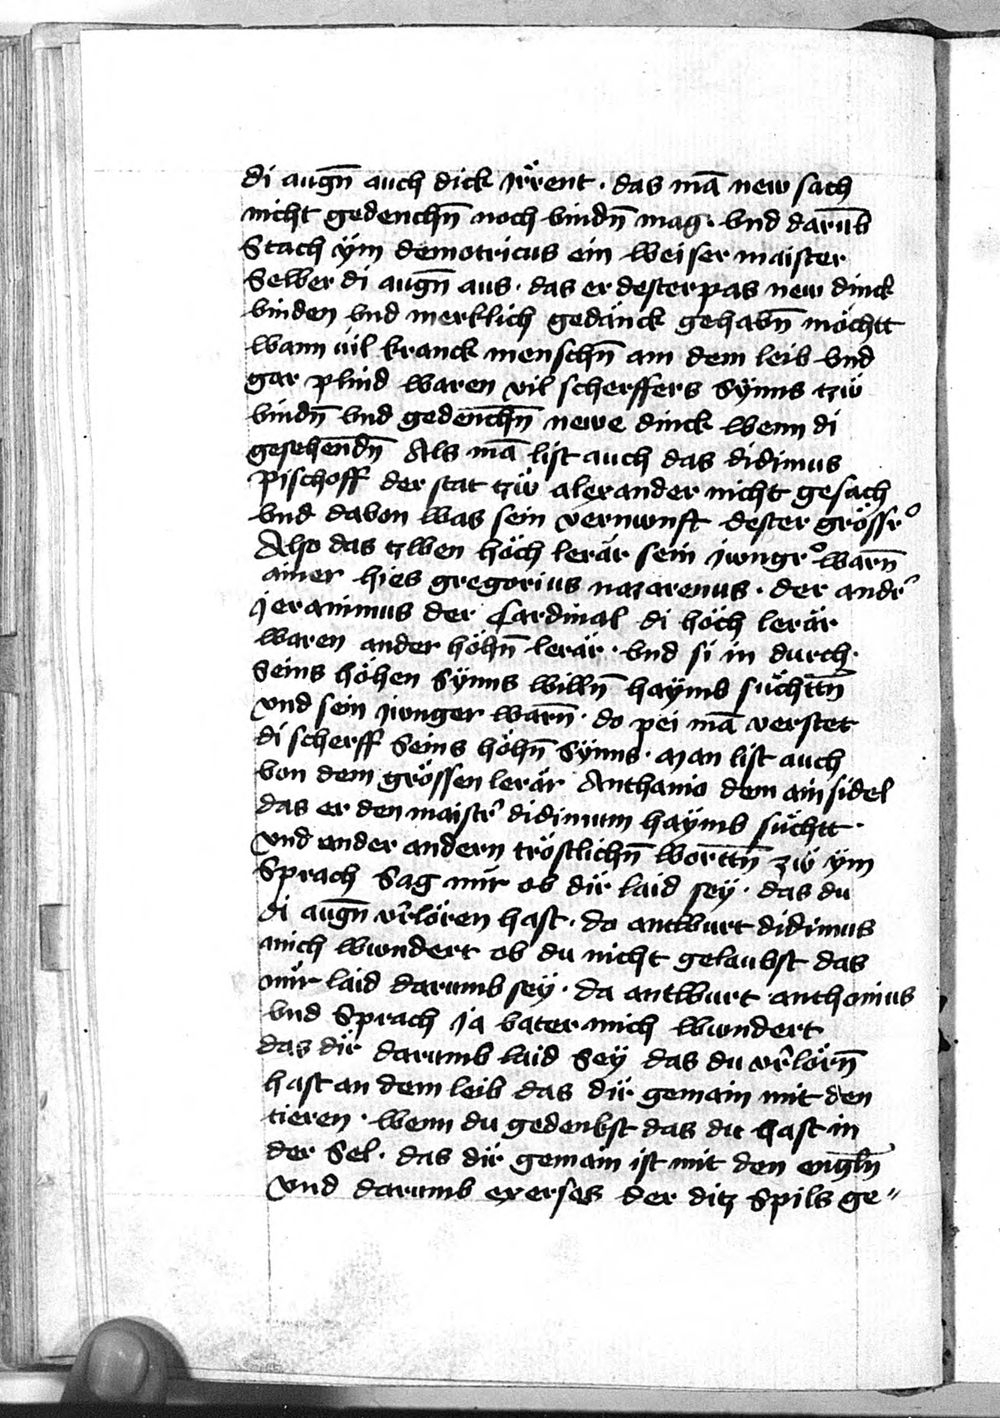 di augn̄ auch dick jrrent · das mā new sach
nicht gedenchn̄ noch vindn̄ mag · vnd darūb
Stach ÿm demotricus ein weiser maister
Selber di augn̄ aus · das er desterpas new dinck
vinden vnd merklich gedänck gehabn̄ möchtt
wann vil kranck menschn̄ am dem leib vnd
gar plind waren vil scherffers Synns tzw̎
vindn̄ vnd gedenchn̄ newe dinck wenn di
gesehendn̄ Als mā list auch das didimus
Pischoff der stat tzw̎ alexander nicht gesach
vnd davon was sein vernunft dester grössr̓
Also das tzwen höch lerär sein jungr̓ warn̄
ainer hies gregorius nazarenus · der andr̓
jeranimus der Cardinal di höch lerär
waren ander höhn̄ lerär · vnd si in durch ·
Seins höhen Sÿnns willn̄ haÿmb sůchttn̄
vnd sein junger warn̄ · do pei mā verstet
di scherff Seins höhn̄ Sÿnns · Man list auch
von dem grössen lerär Anthanio dem ainsidel
das er den maistr̓ didimum haÿmb sůchtt ·
vnd vnder andern tröstlichn̄ worttn̄ zw̎ ÿm
Sprach Sag mir ob dir laid seÿ · das du
di augn̄ vr̓lören hast · do antwurt didimus
mich wundert ob du nicht gelaubst das
mir laid darumb seÿ · da antwurt anthonius
vnd Sprach ja vater mich wundert
das dir darumb laid Seÿ das du vr̓lörn̄
hast an dem leib das dir gemain mit den
tieren · wenn du gedenkst das du hast in
der Sel · das dir gemain ist mit den engln̄
vnd darumb exerses der ditz Spils ge〃